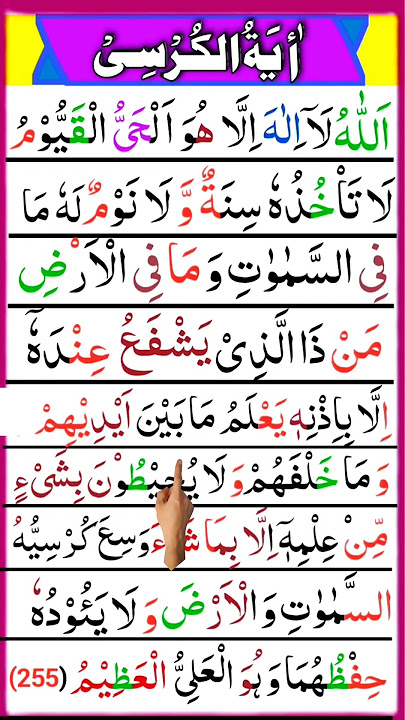 اٰیَةُ الْكُرْسِیْ
اَللّٰهُ لَاۤ اِلٰهَ اِلَّا هُوَ اَلْحَیُّ الْقَیُّوْمُ
لَا تَاْخُذُهٗ سِنَةٌ وَّ لَا نَوْمٌ لَهٗ مَا
فِی السَّمٰوٰتِ وَ مَا فِی الْاَرْضِ
مَنْ ذَا الَّذِیْ یَشْفَعُ عِنْدَهٗۤ
اِلَّا بِاِذْنِهٖ یَعْلَمُ مَا بَیْنَ اَیْدِیْهِمْ
وَ مَا خَلْفَهُمْ وَ لَا یُحِیْطُوْنَ بِشَیْءٍ
مِّنْ عِلْمِهٖۤ اِلَّا بِمَا شَآءَ وَسِعَ كُرْسِیُّهُ
السَّمٰوٰتِ وَ الْاَرْضَ وَ لَا یَـُٔوْدُهٗ
حِفْظُهُمَا وَ هُوَ الْعَلِیُّ الْعَظِیْمُ (255)